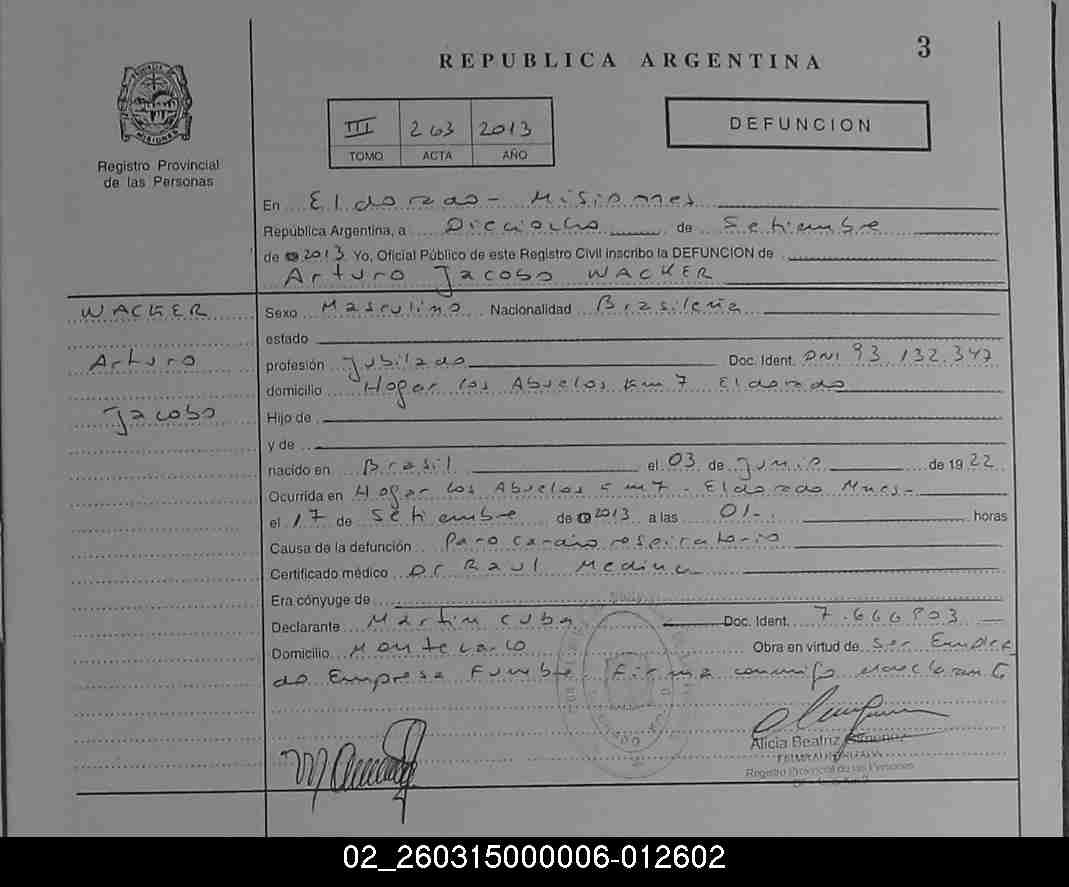 REPUBLICA ARGENTINA
3
III 263 2013
TOMO ACTA AÑO
DEFUNCION
Registro Provincial
de las Personas
En Eldorado - Misiones
República Argentina, a Dieciocho de Setiembre
de 2013 Yo, Oficial Público de este Registro Civil inscribo la DEFUNCION de
Arturo Jacobo WACKER
WACKER
Arturo
Jacobo
Sexo Masculino Nacionalidad Brasileña
estado
profesión Jubilado Doc. Ident. DNI 93.132.347
domicilio Hogar los Abuelos Km 7 Eldorado
Hijo de
y de
nacido en Brasil el 03 de Junio de 1922
Ocurrida en Hogar los Abuelos Km 7 - Eldorado Mnes-
el 17 de Setiembre de 2013 a las 01-. horas
Causa de la defunción Paro cardio respiratorio
Certificado médico Dr Raul Medina
Era cónyuge de
Declarante Martin Cuba Doc. Ident.
Domicilio Montecarlo Obra en virtud de Ser Emplea
do Empresa Funebre. Firma conmigo el declarante
Alicia Beatriz Gimenez
Registro Provincial de las Personas
02_260315000006-012602